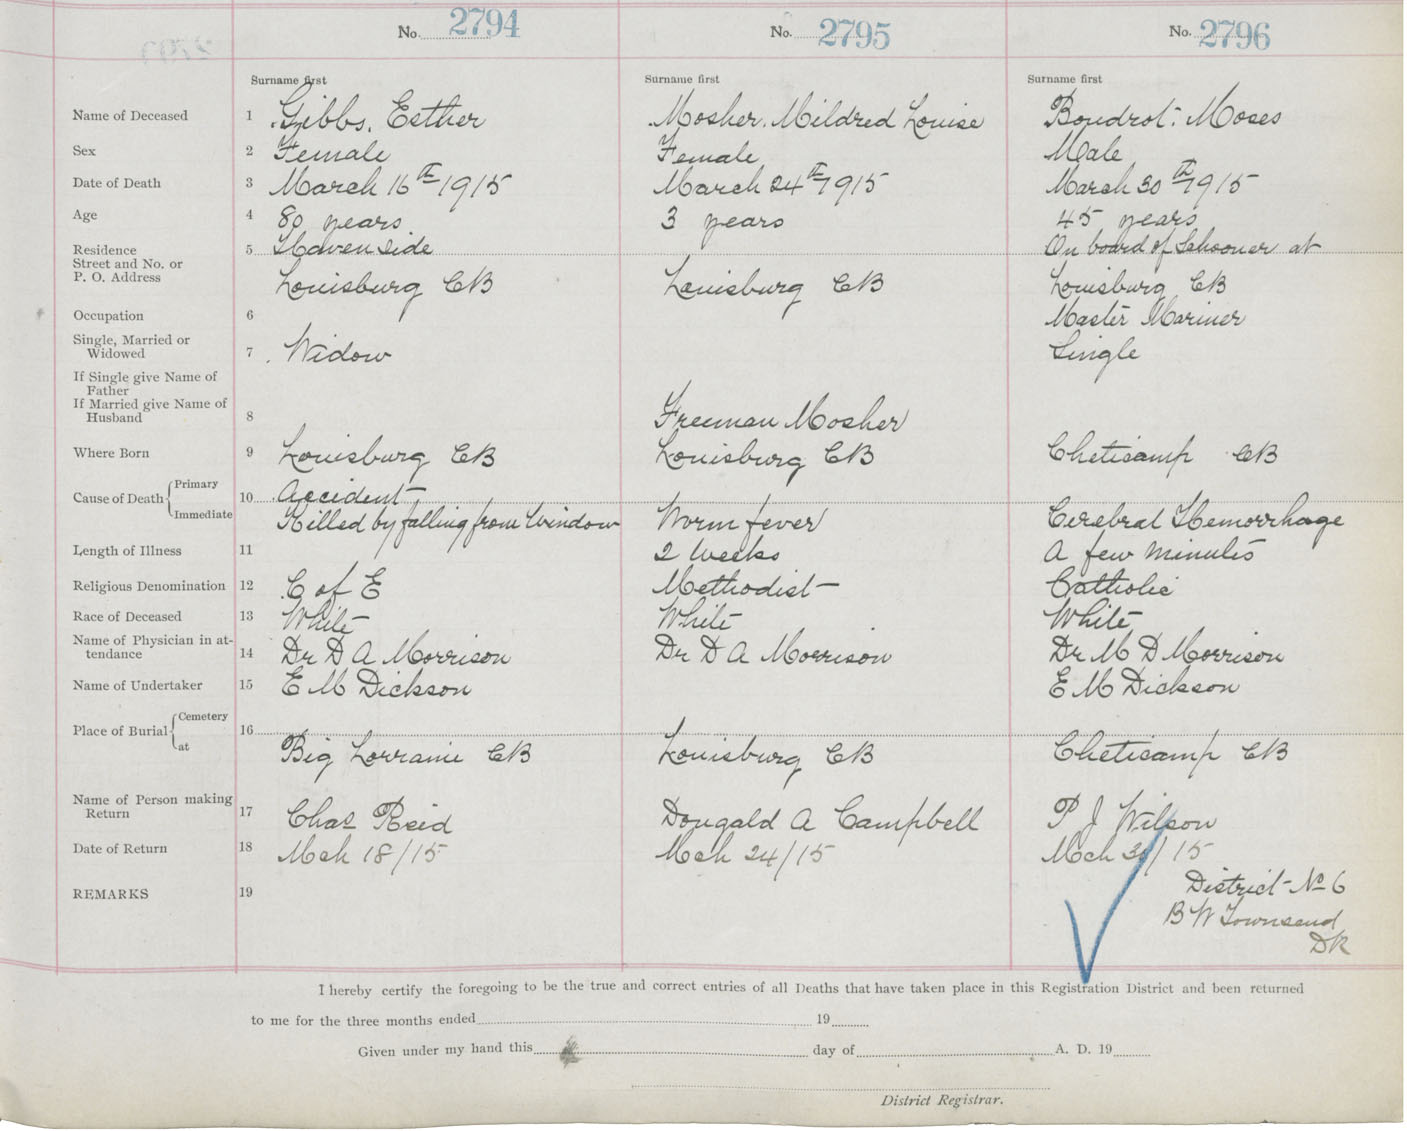 No. 2794 No. 2795 No. 2796
Surname first Surname first Surname first
Name of Deceased 1 Gibbs, Esther Mosher. Mildred Louise Boudrot: Moses
Sex 2 Female Female Male
Date of Death 3 March 16th 1915 March 24th 1915 March 30th 1915
Age 4 80 years 3 years 45 years
Residence 5 Havenside On board of Schooner at
Street and No. or
P. O. Address Louisburg CB Louisburg CB Louisburg CB
Occupation 6 Master Mariner
Single, Married or
Widowed 7 Widow Single
If Single give Name of
Father
If Married give Name of
Husband 8 Freeman Mosher
Where Born 9 Louisburg CB Louisburg CB Cheticamp CB
Cause of Death Primary 10 Accident
Immediate Killed by falling from Window Worm fever Cerebral Hemorrhage
Length of Illness 11 2 Weeks A few minutes
Religious Denomination 12 C of E Methodist Catholic
Race of Deceased 13 White White White
Name of Physician in at-
tendance 14 Dr D A Morrison Dr D A Morrison Dr M D Morrison
Name of Undertaker 15 E M Dickson E M Dickson
Place of Burial Cemetery 16
at Big Lorraine CB Louisburg CB Cheticamp CB
Name of Person making
Return 17 Chas Reid Dougald A Campbell P J Wilson
Date of Return 18 Mch 18/15 Mch 24/15 Mch 30/15
REMARKS 19 District No 6
B W Townsend
DR
I hereby certify the foregoing to be the true and correct entries of all Deaths that have taken place in this Registration District and been returned
to me for the three months ended 19
Given under my hand this day of A. D. 19
District Registrar.